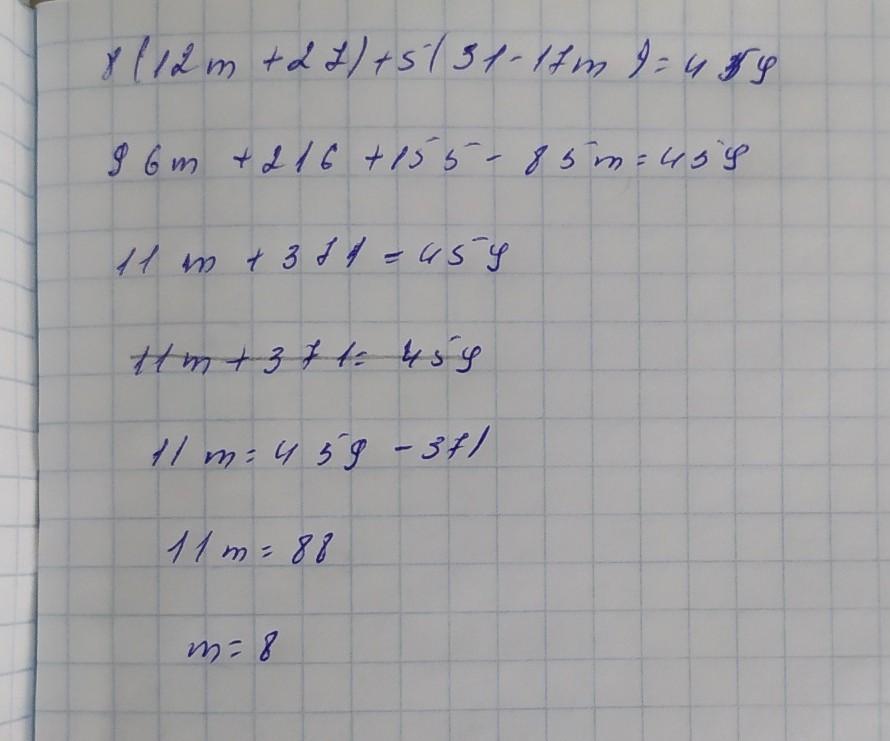 8(12m+27)+5(31-17m)=459
96m+216+155-85m=459
11m+371=459
11m+371=459
11m=459-371
11m=88
m=8